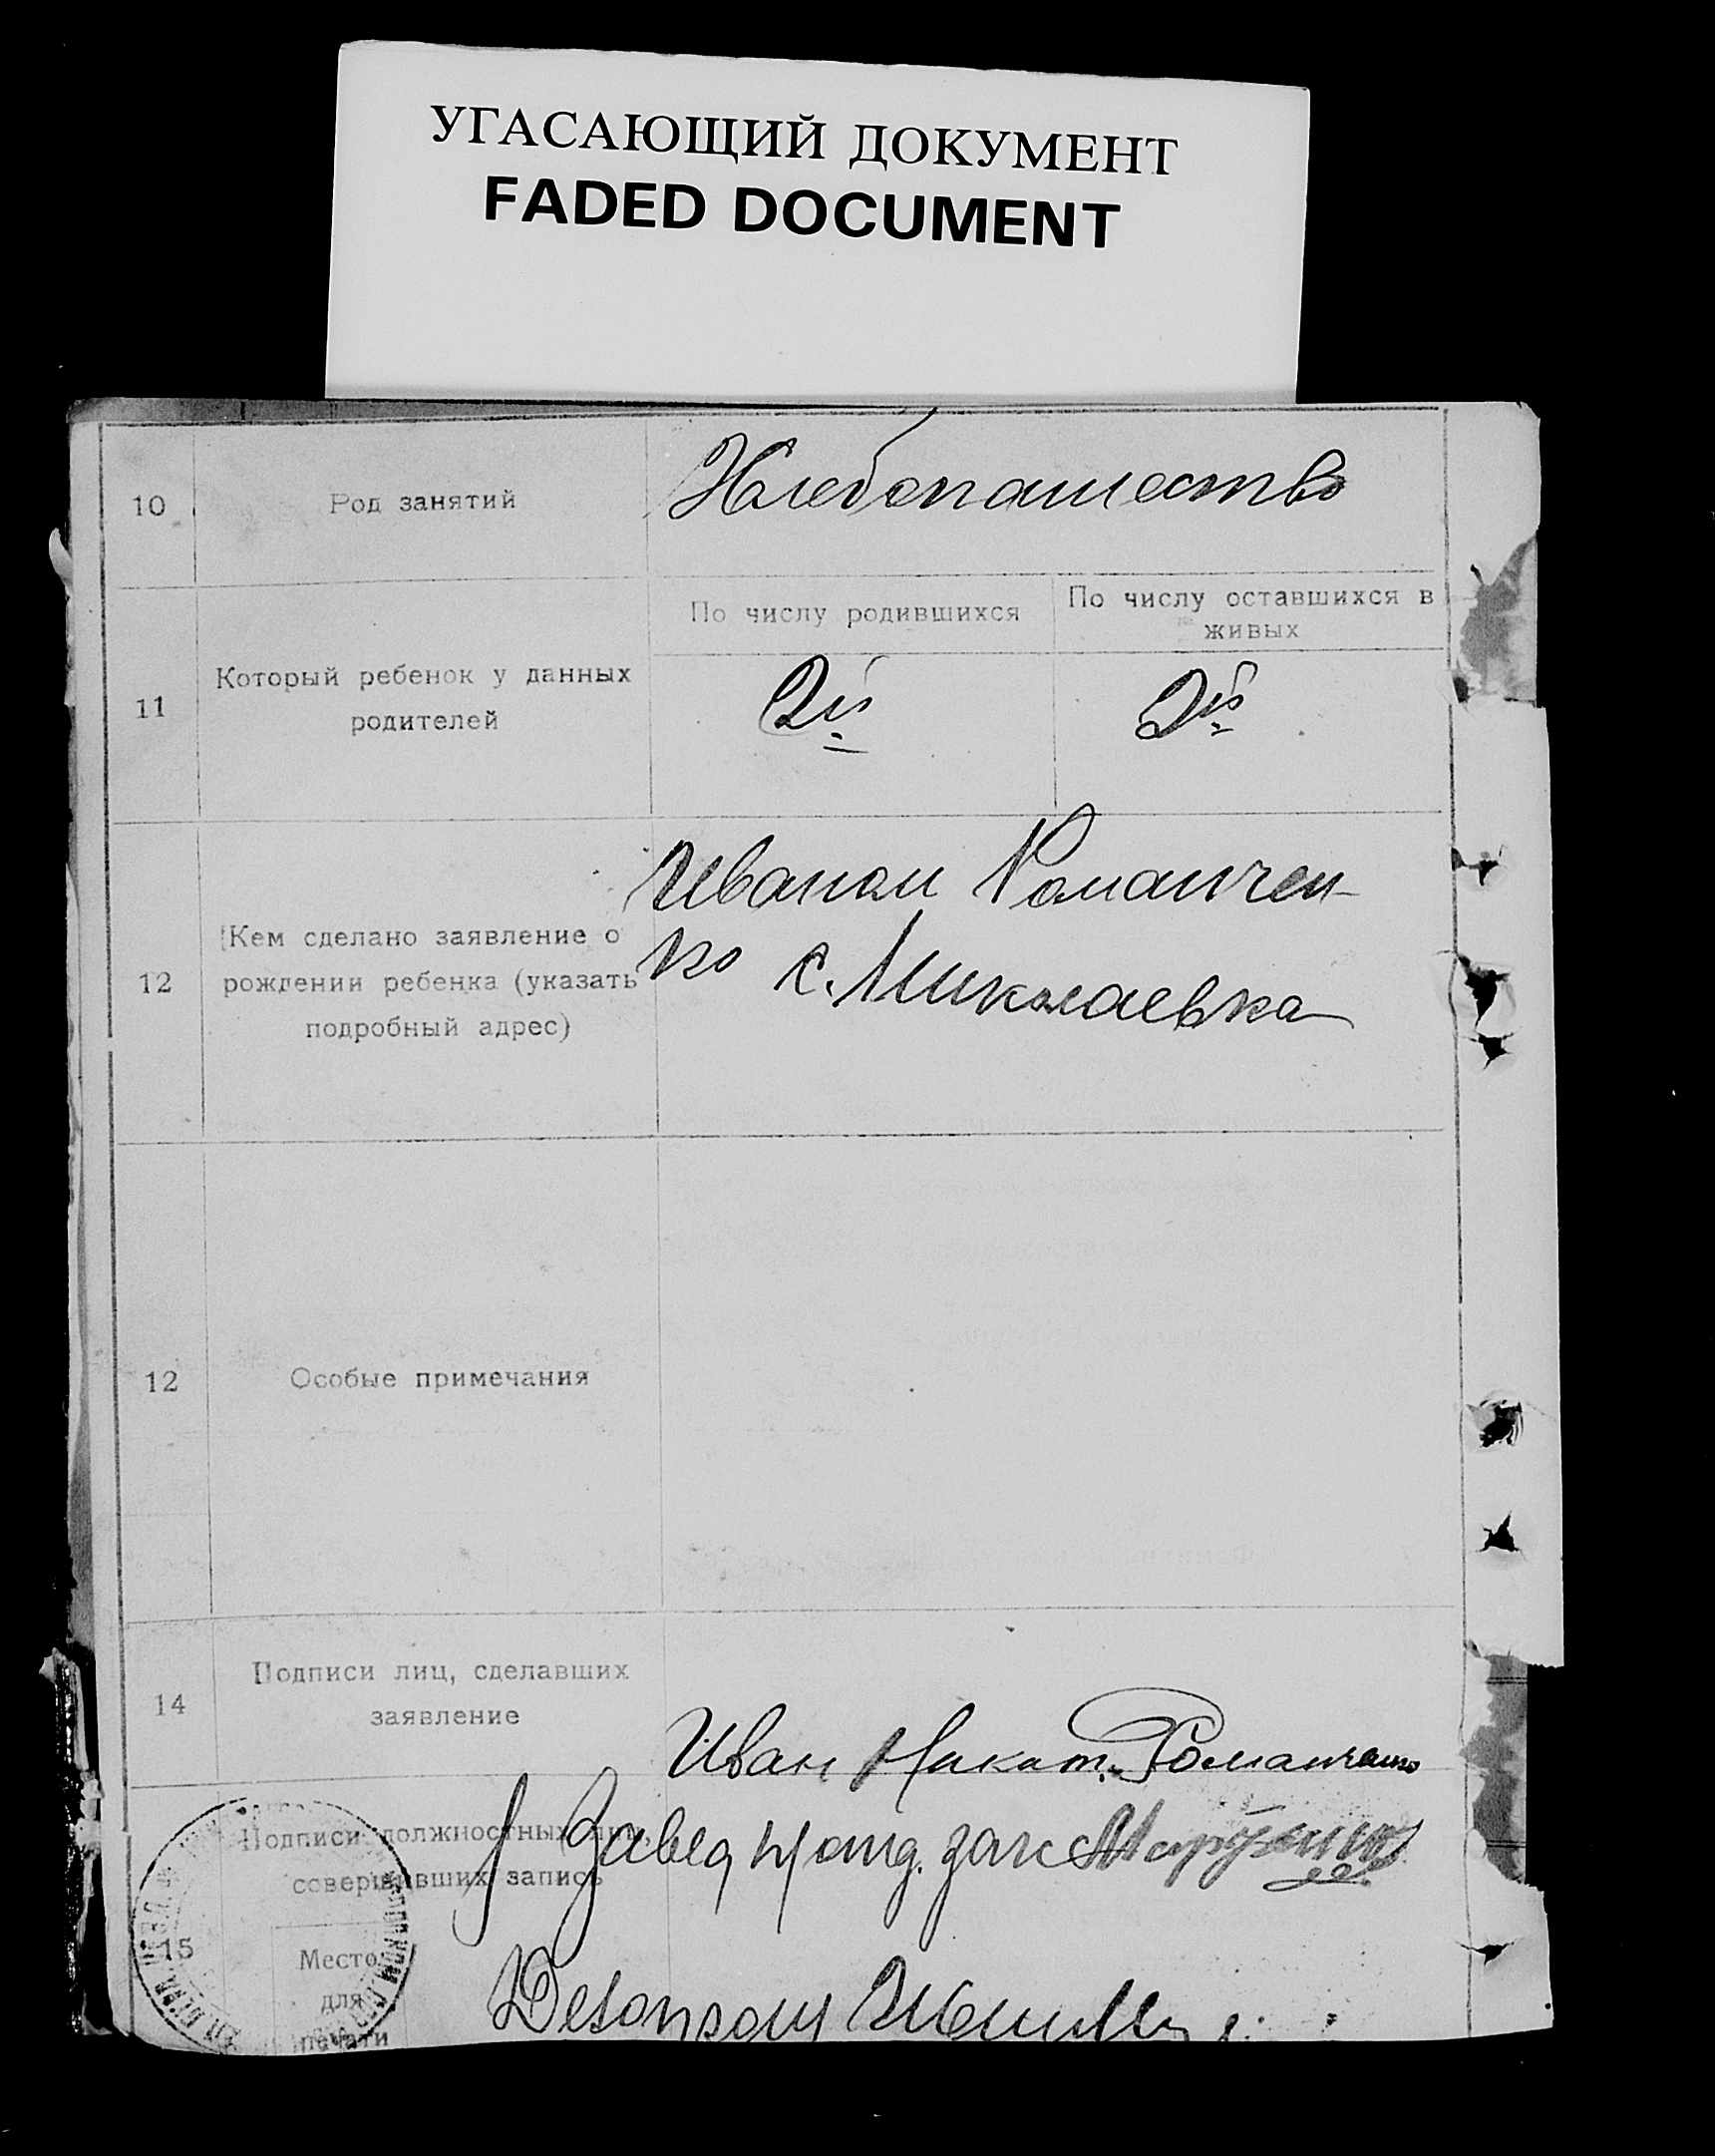 УГАСАЮЩИЙ ДОКУМЕНТ
FADED DOCUMENT
10
Род занятий
Хлебопашество
11
Который ребенок у данных
родителей
По числу родившихся
По числу оставшихся в
живых
2й
2й
12
Кем сделано заявление о
рождении ребенка (указать
подробный адрес)
Иваном Романчен-
ко с. Николаевка
12
Особые примечания
14
Подписи лиц, сделавших
заявление
Иван Романченко
15
Подписи должностных лиц,
совершивших запись
Завед
Место
для
печати
Делопроиз